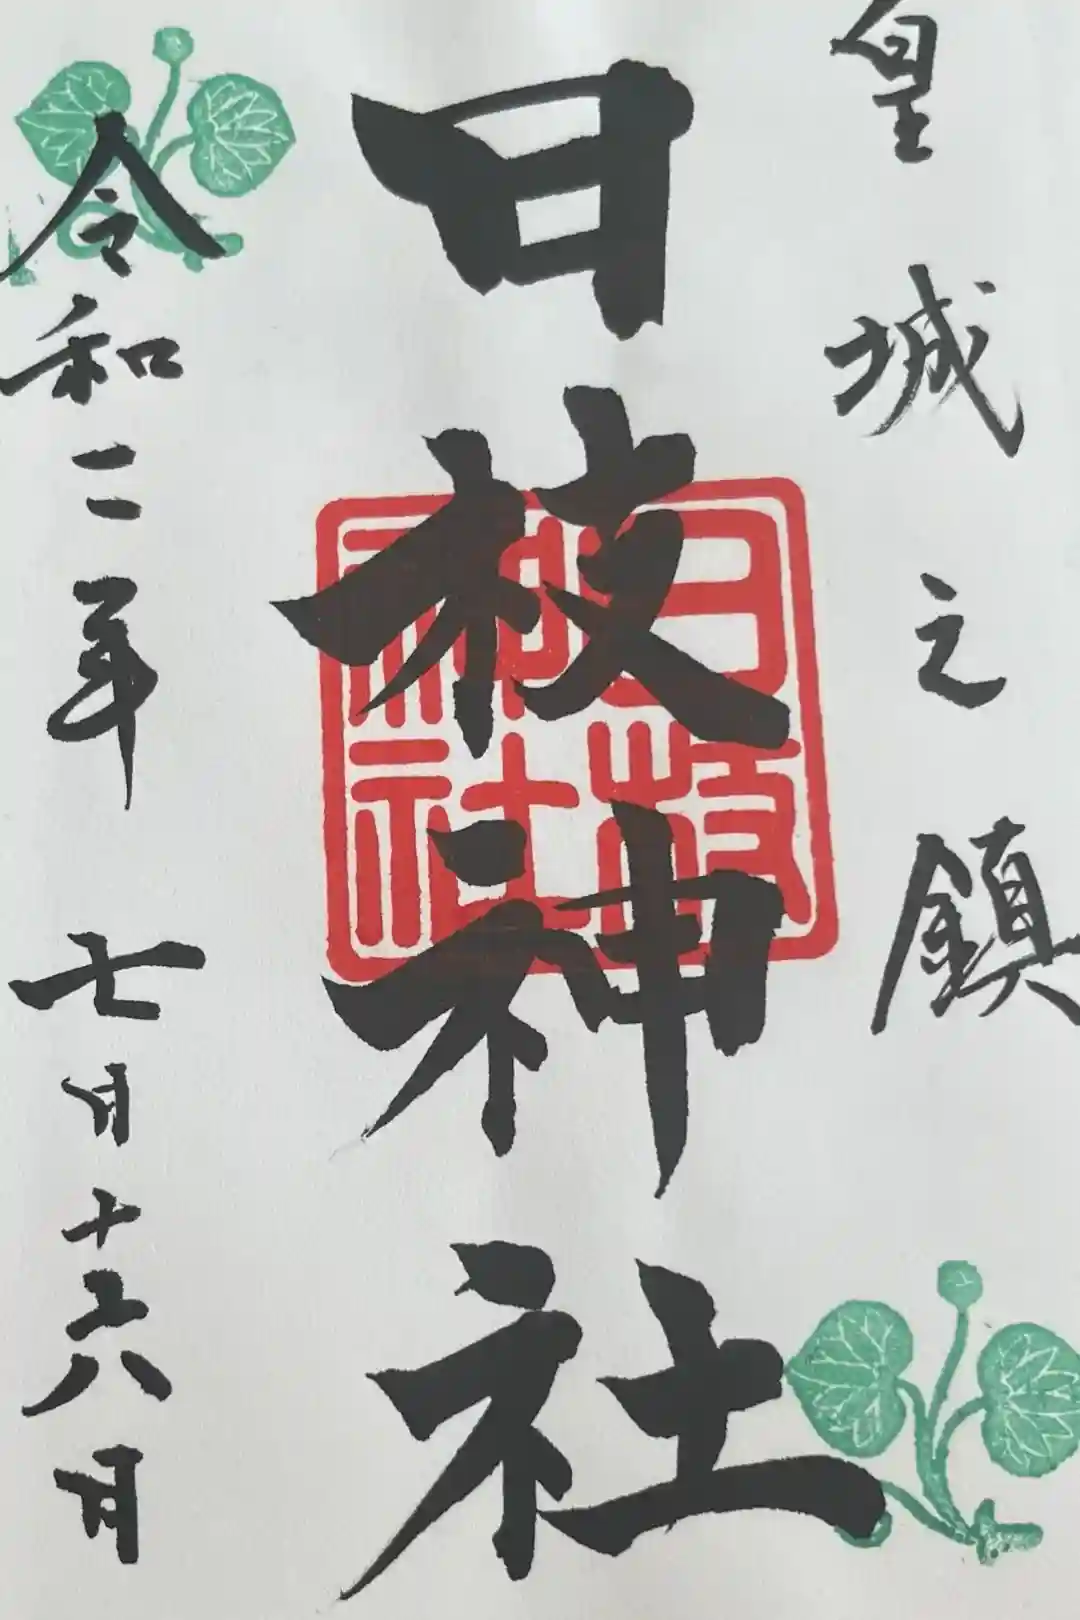 皇城之鎮
日枝神社
日枝
神社
令和二年七月十六日